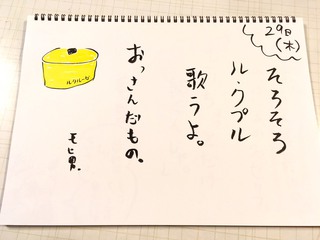 29日
(木)
そろそろ
ル・クプル
歌うよ。
おっさんだもの。
モヒ男。